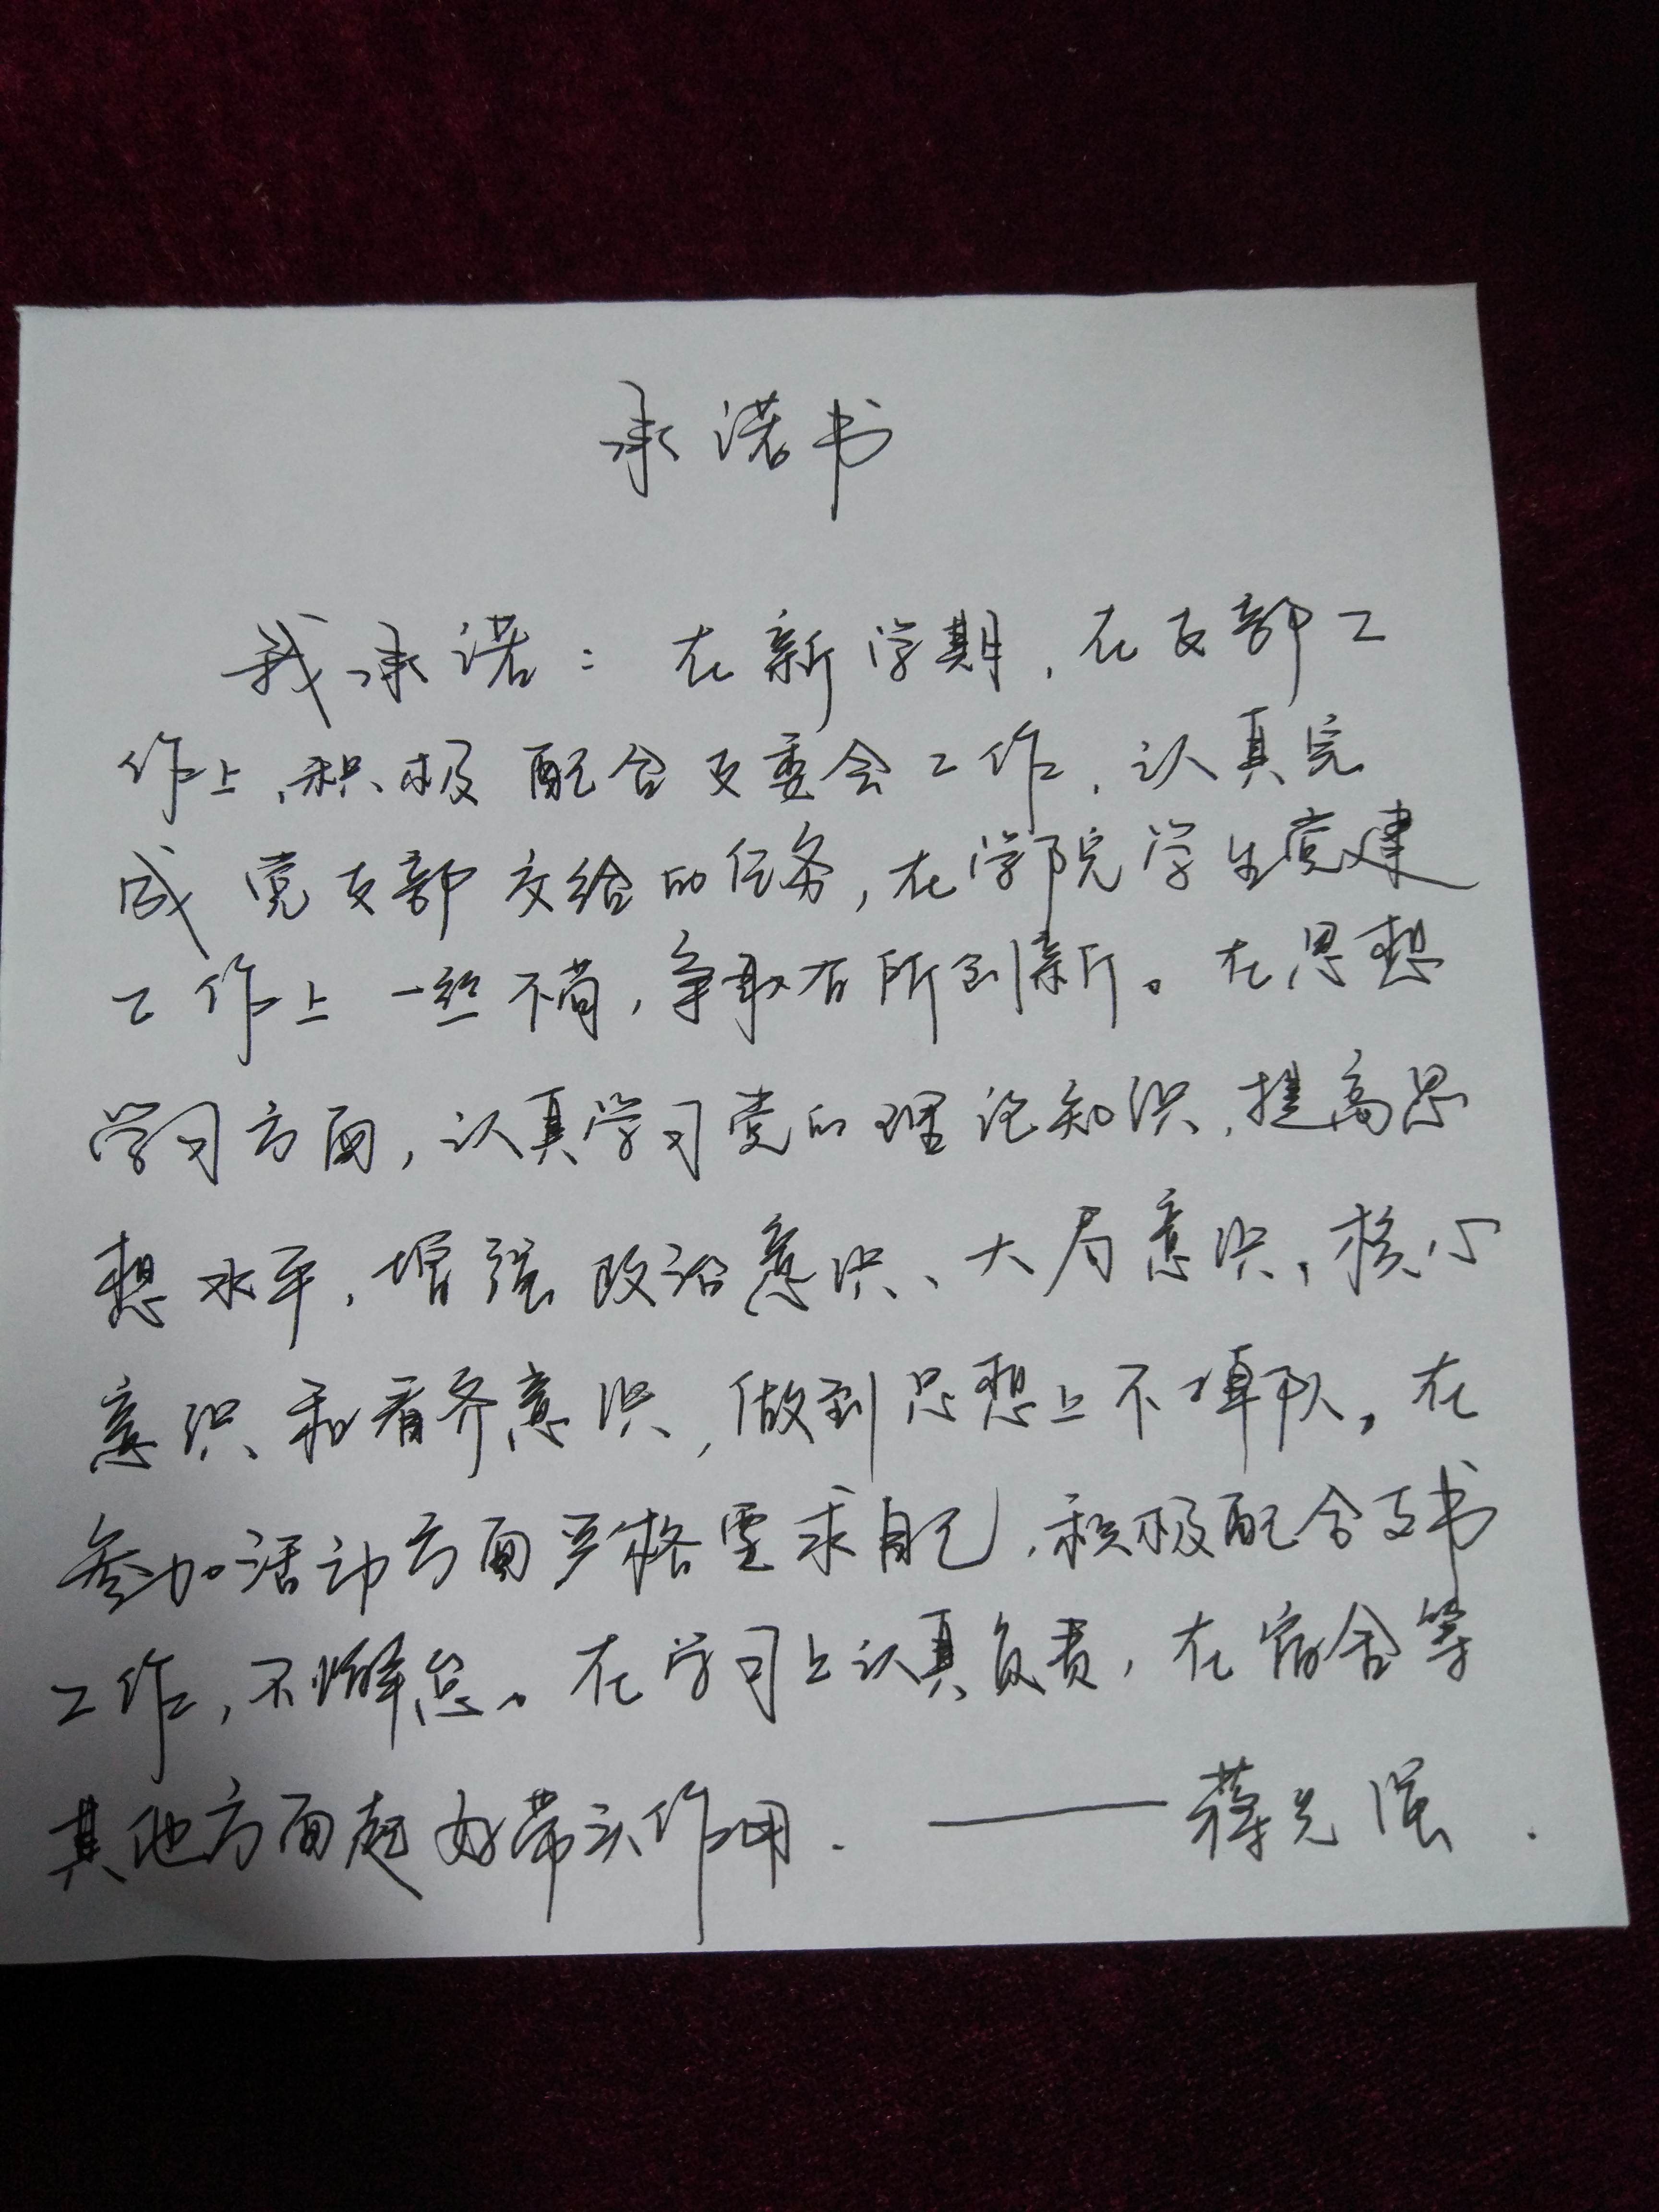 承诺书
我承诺：在新学期，在支部工
作上，积极配合支委会工作，认真完
成党支部交给的任务，在学院学生党建
工作上一丝不苟，争取有所创新。在思想
学习方面，认真学习党的理论知识，提高思
想水平，增强政治意识、大局意识，核心
意识、和看齐意识，做到思想上不掉队。在
参加活动方面严格要求自己，积极配合支书
工作，不懈怠。在学习上认真负责，在宿舍等
其他方面起好带头作用. ——蒋光强.